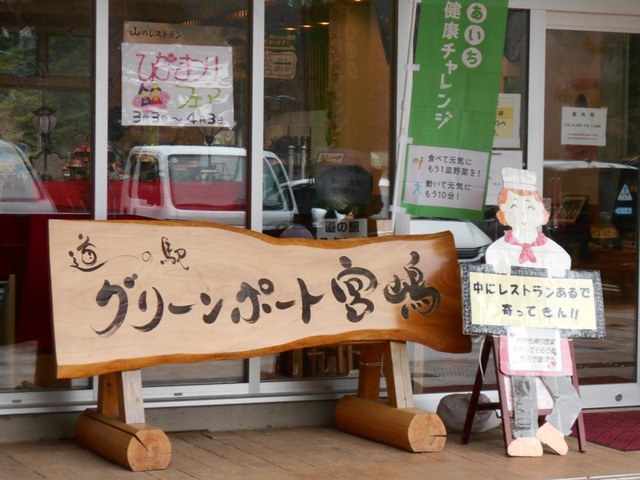 山のレストラン
ひなまつり
フェア
3月3日〜4月3日
あいち
健康チャレンジ
食べて元気に
もう1皿野菜を!
動いて元気に
もう10分!
道の駅
道の駅
グリーンポート宮嶋
中にレストランあるで
寄ってきん!!